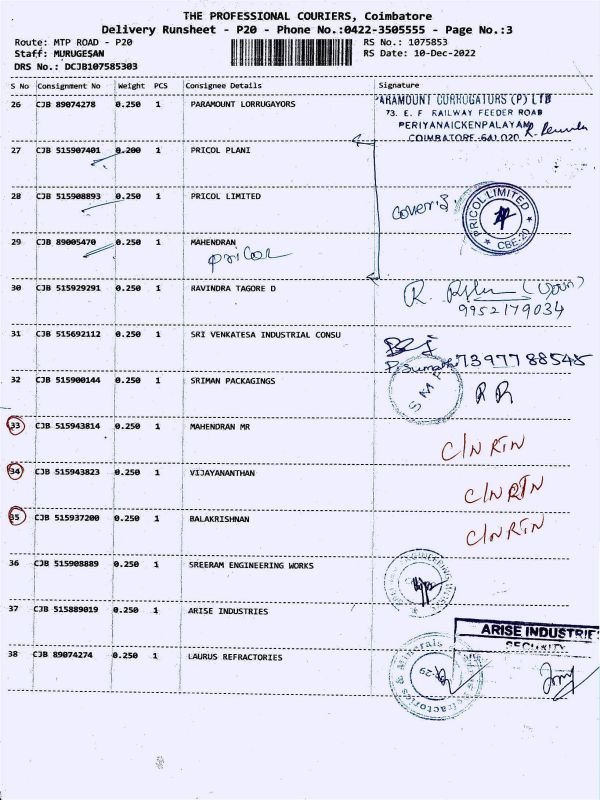 THE PROFESSIONAL COURIERS, Coimbatore
Delivery Runsheet - P20 - Phone No.:0422-3505555 - Page No.:3
Route: MTP ROAD - P20 RS No.: 1075853
Staff: MURUGESAN RS Date: 10-Dec-2022
DRS No.: DCJB107585303
S No Consignment No Weight PCS Consignee Details Signature
26 CJB 89074278 0.250 1 PARAMOUNT LORRUGAYORS
ARAMOUNT CORRUGATORS (P) LTD
73, E. F RAILWAY FEEDER ROAD
PERIYANAICKENPALAYAM
COIMBATORE-641 020
27 CJB 515907401 0.200 1 PRICOL PLANI
28 CJB 515908893 0.250 1 PRICOL LIMITED
PRICOL LIMITED
CBE-20
29 CJB 89005470 0.250 1 MAHENDRAN
pricol
30 CJB 515929291 0.250 1 RAVINDRA TAGORE D
9952179034
31 CJB 515692112 0.250 1 SRI VENKATESA INDUSTRIAL CONSU
7397788545
32 CJB 515900144 0.250 1 SRIMAN PACKAGINGS
33 CJB 515943814 0.250 1 MAHENDRAN MR C/N RTN
34 CJB 515943823 0.250 1 VIJAYANANTHAN C/N RTN
35 CJB 515937200 0.250 1 BALAKRISHNAN C/N RTN
36 CJB 515908889 0.250 1 SREERAM ENGINEERING WORKS
37 CJB 515889019 0.250 1 ARISE INDUSTRIES
ARISE INDUSTRIE
SECURITY
38 CJB 89074274 0.250 1 LAURUS REFRACTORIES